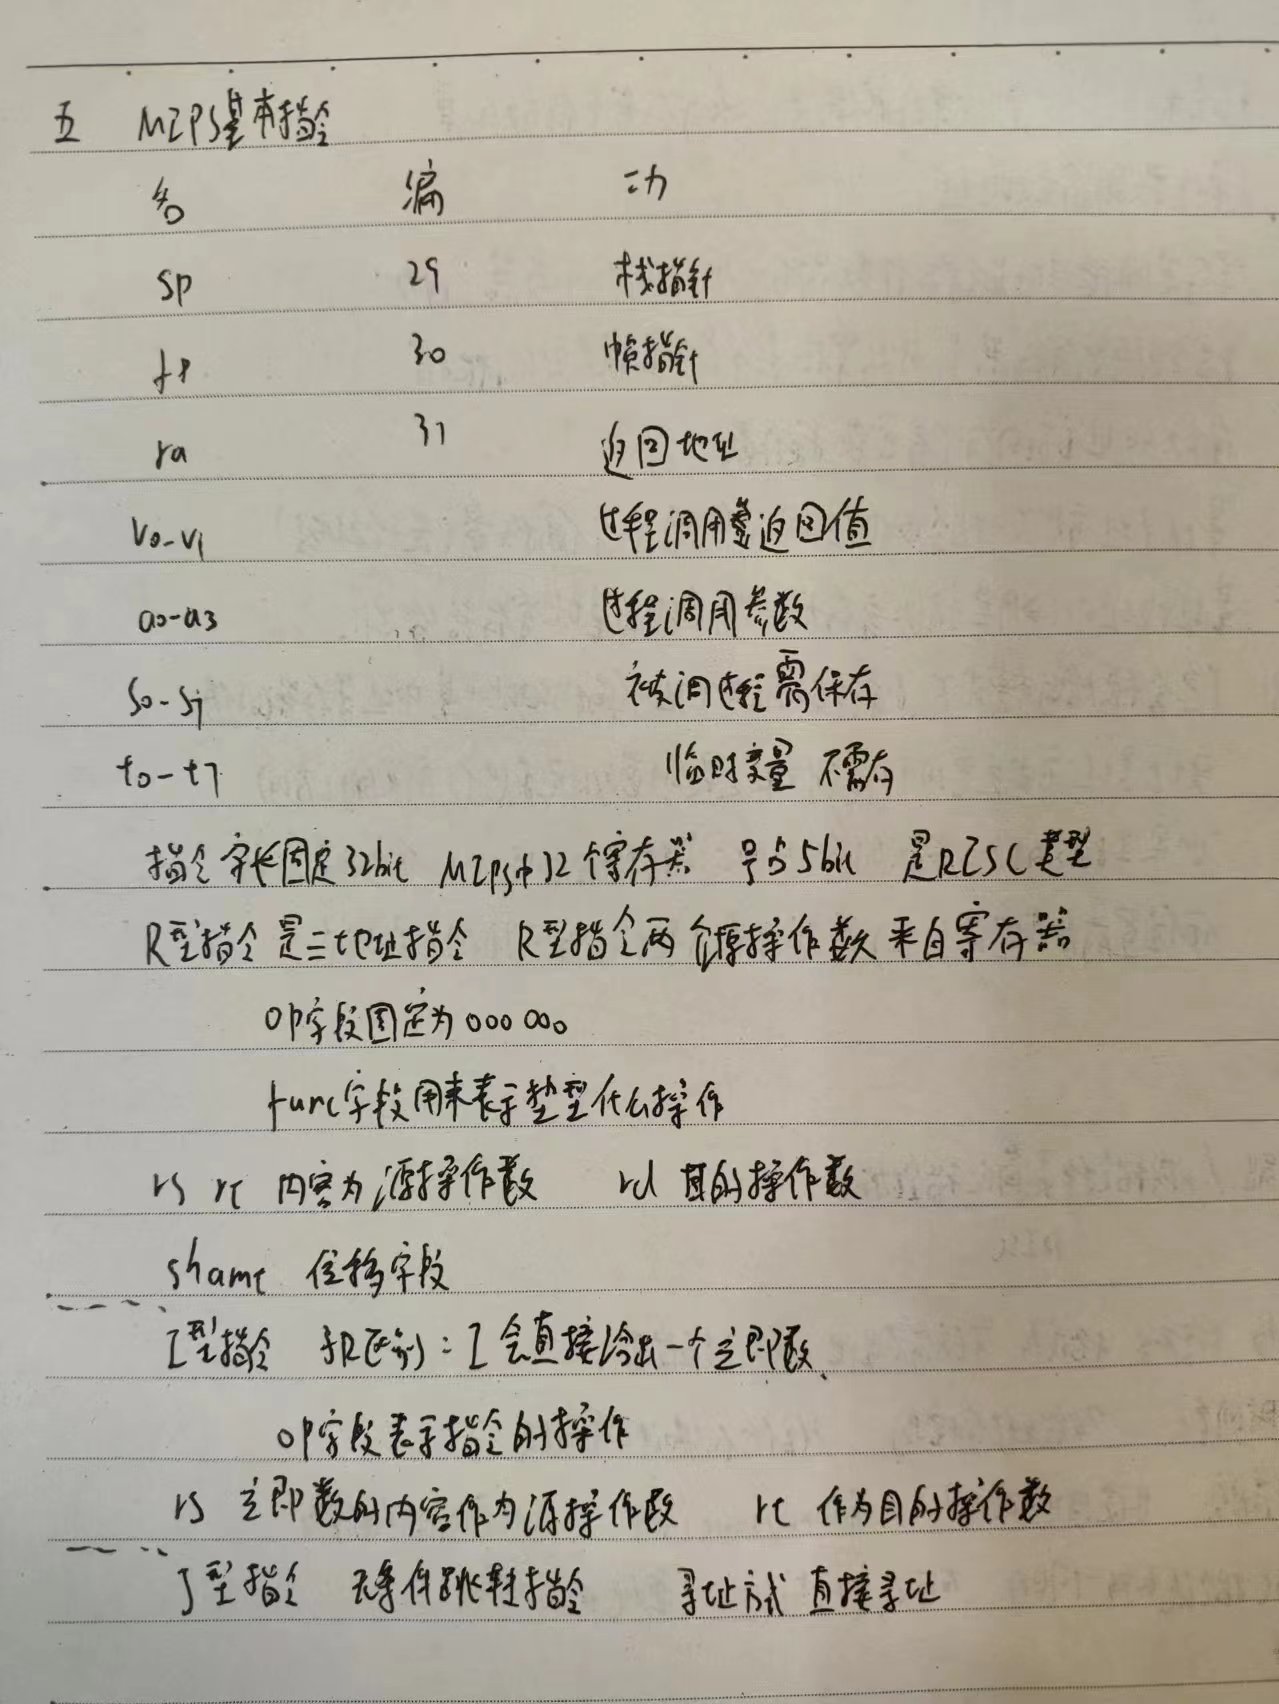 五 MIPS基本指令
名 编 功
sp 29 栈指针
fp 30 帧指针
ra 31 返回地址
v0-v1 过程调用返回值
a0-a3 过程调用参数
s0-s7 被调过程需保存
t0-t7 临时变量 不需存
指令字长固定32bit MIPS中32个寄存器 号占5bit 是RISC类型
R型指令是三地址指令 R型指令两个源操作数来自寄存器
OP字段固定为000000
func字段用来表示 型什么操作
rs rt 内容为源操作数 rd 目的操作数
shamt 位移字段
I型指令 于R区别:I会直接给出一个立即数
OP字段表示指令的操作
rs 立即数的内容作为源操作数 rt 作为目的操作数
J型指令 无条件跳转指令 寻址方式 直接寻址